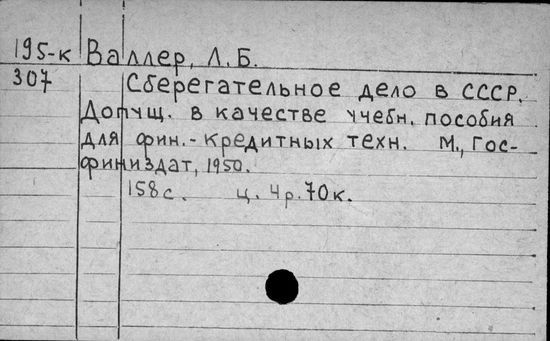 195-к Валлер, Л.Б.
307 Сберегательное дело в СССР.
Допущ. в качестве учебн. пособия
для фин.-кредитных техн. М., Гос-
финиздат, 1950.
158 с. ц. 4 р. 70 к.